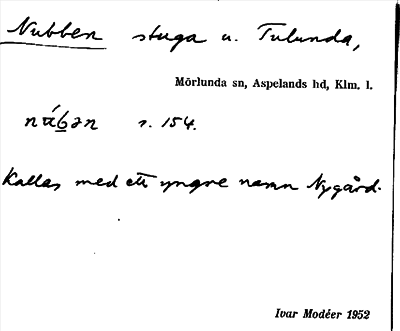 Nubben stuga u. Tulunda,
Mörlunda sn, Aspelands hd, Klm. l.
núbən s. 154.
Kallas med ett yngre namn Nygård.
Ivar Modéer 1952